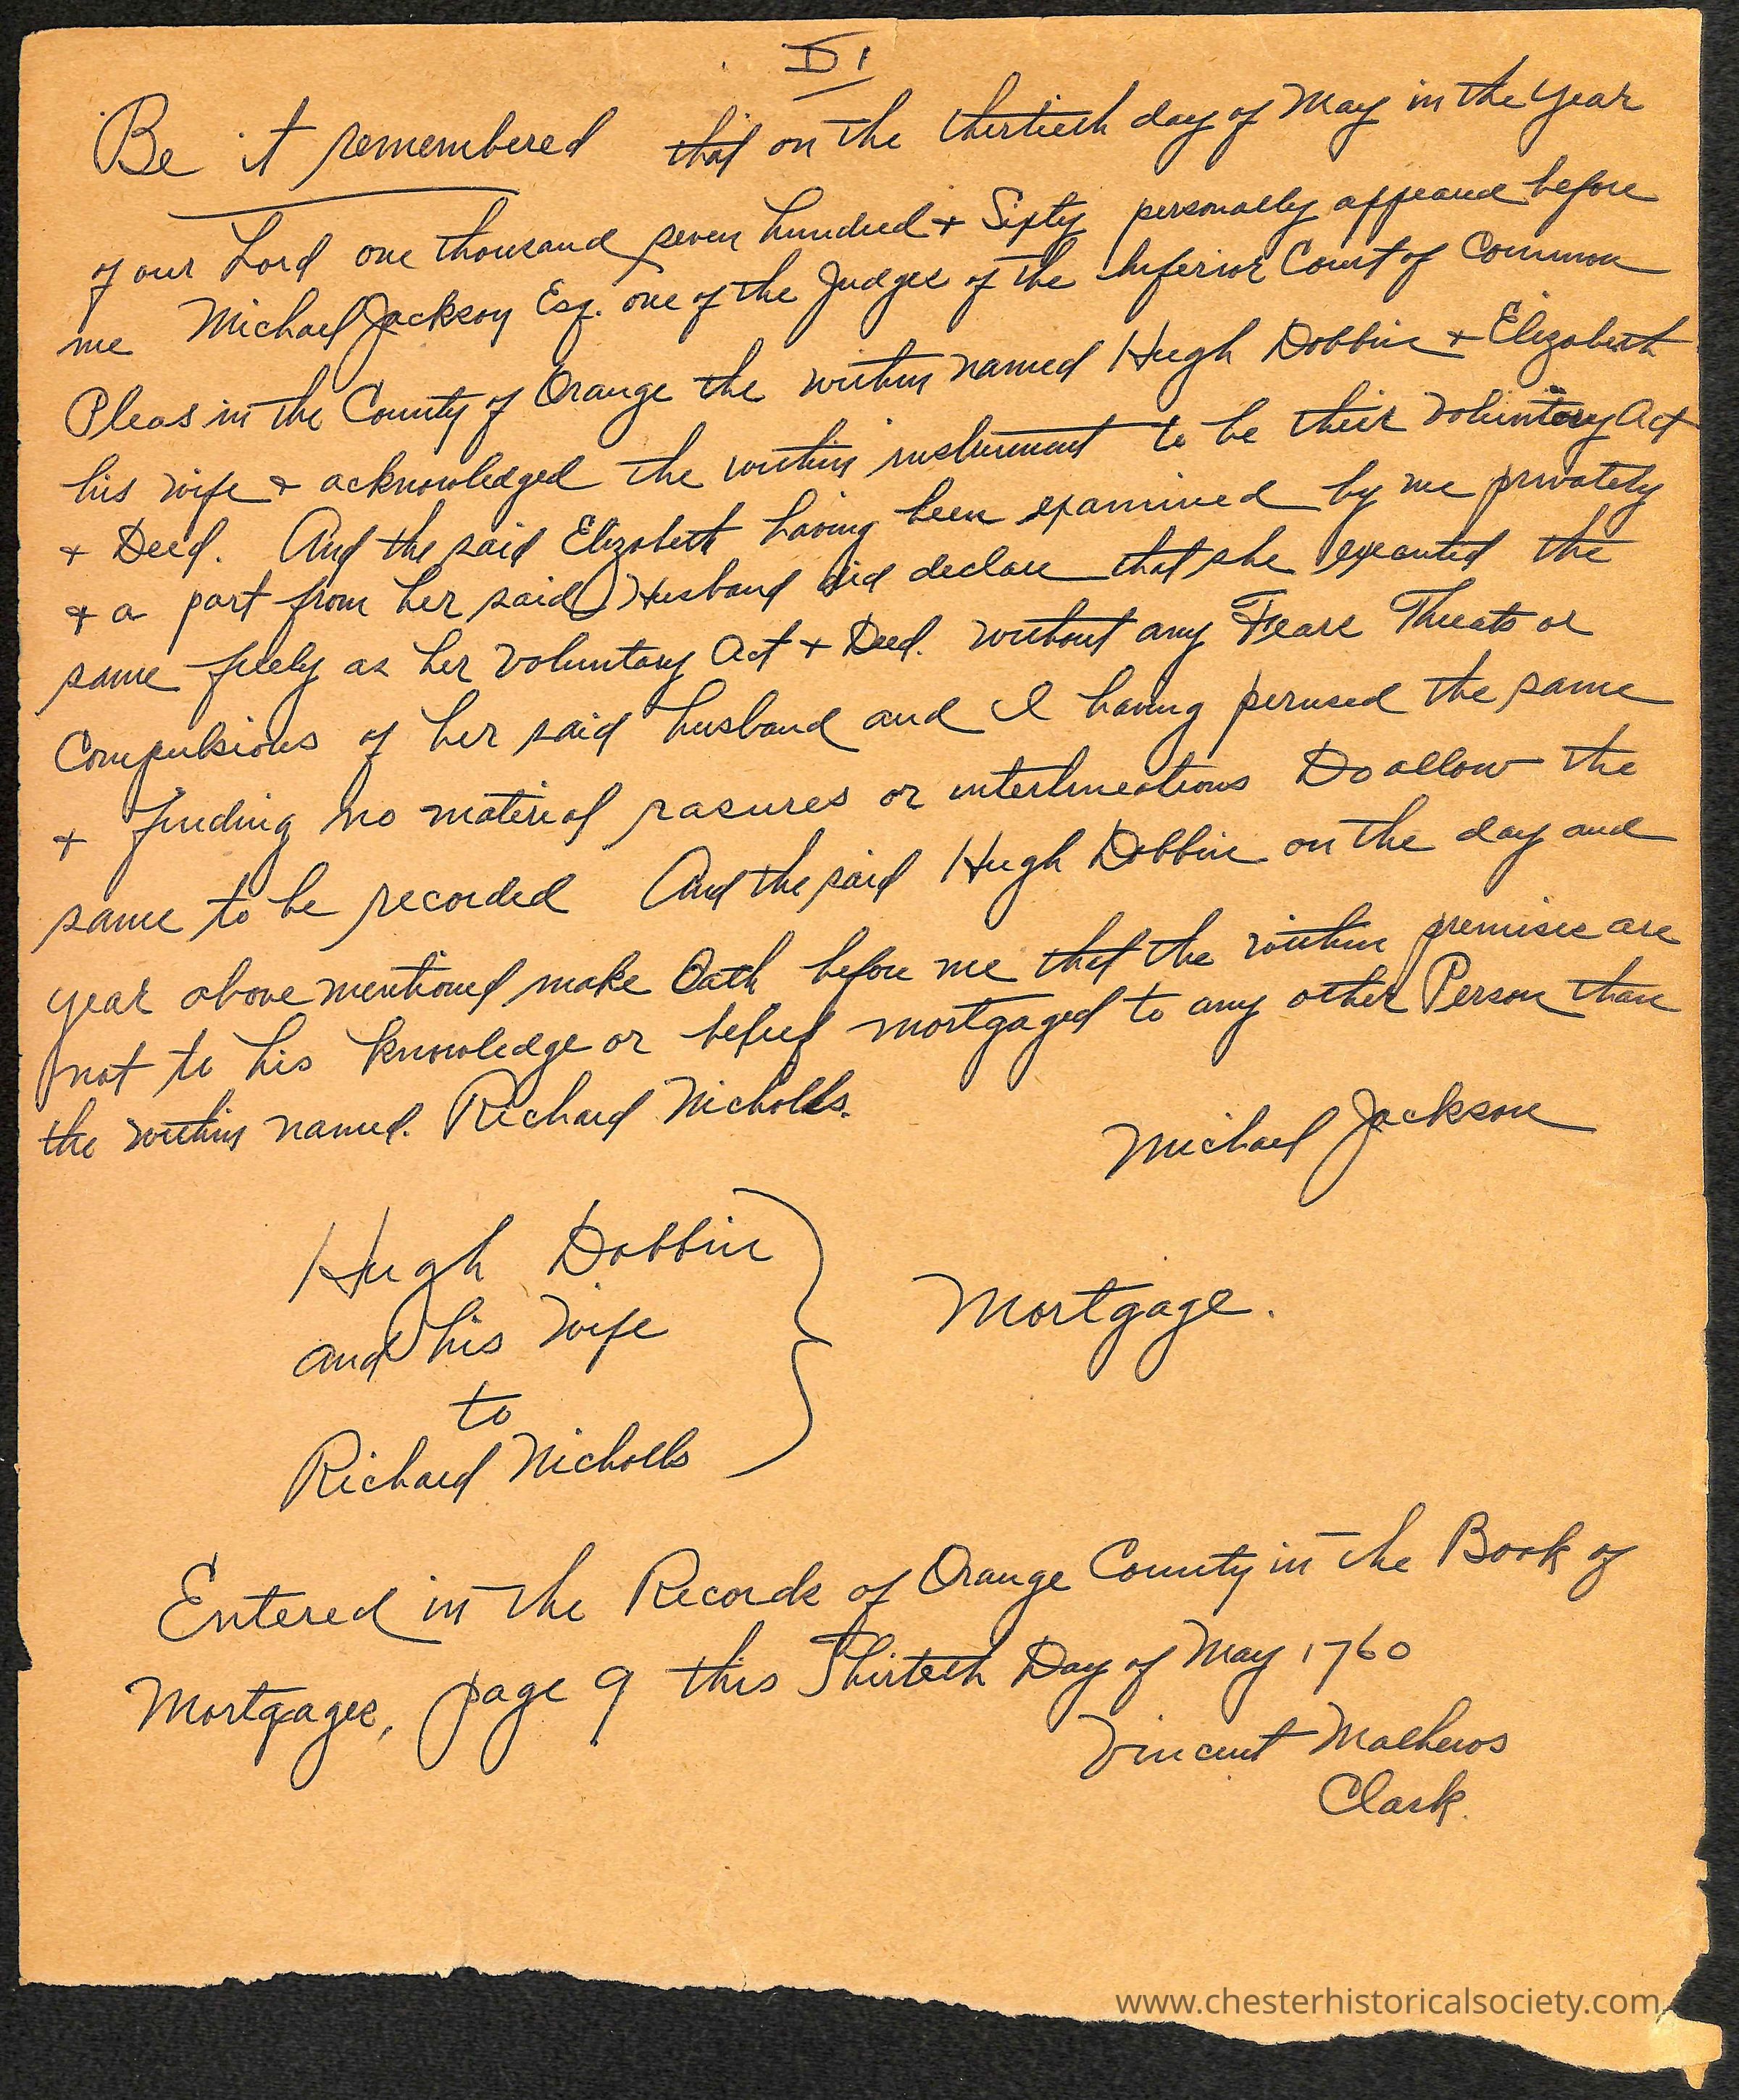 D1
Be it remembered that on the thirtieth day of May in the Year
of our Lord one thousand seven hundred + Sixty personally appeared before
me Michael Jackson Esq. one of the Judges of the Inferior Court of Common
Pleas in the County of Orange the within named Hugh Dobbin + Elizabeth
his wife + acknowledged the within instrument to be their Voluntary Act
+ Deed. And the said Elizabeth having been examined by me privately
+ a part from her said Husband did declare that she executed the
same freely as her voluntary Act + Deed. without any Feare Threats or
Compulsions of her said husband and I having perused the same
+ finding no material rasures or interlineations Do allow the
same to be recorded And the said Hugh Dobbin on the day and
year above mentioned make Oath before me that the within premises are
not to his knowledge or belief mortgaged to any other Person than
the within named. Richard Nicholls.
Michael Jackson
Hugh Dobbin
and his wife
to
Richard Nicholls
Mortgage.
Entered in the Records of Orange County in the Book of
Mortgages, page 9 this Thirteth Day of May 1760
Vincent Mathews
Clark.
www.chesterhistoricalsociety.com